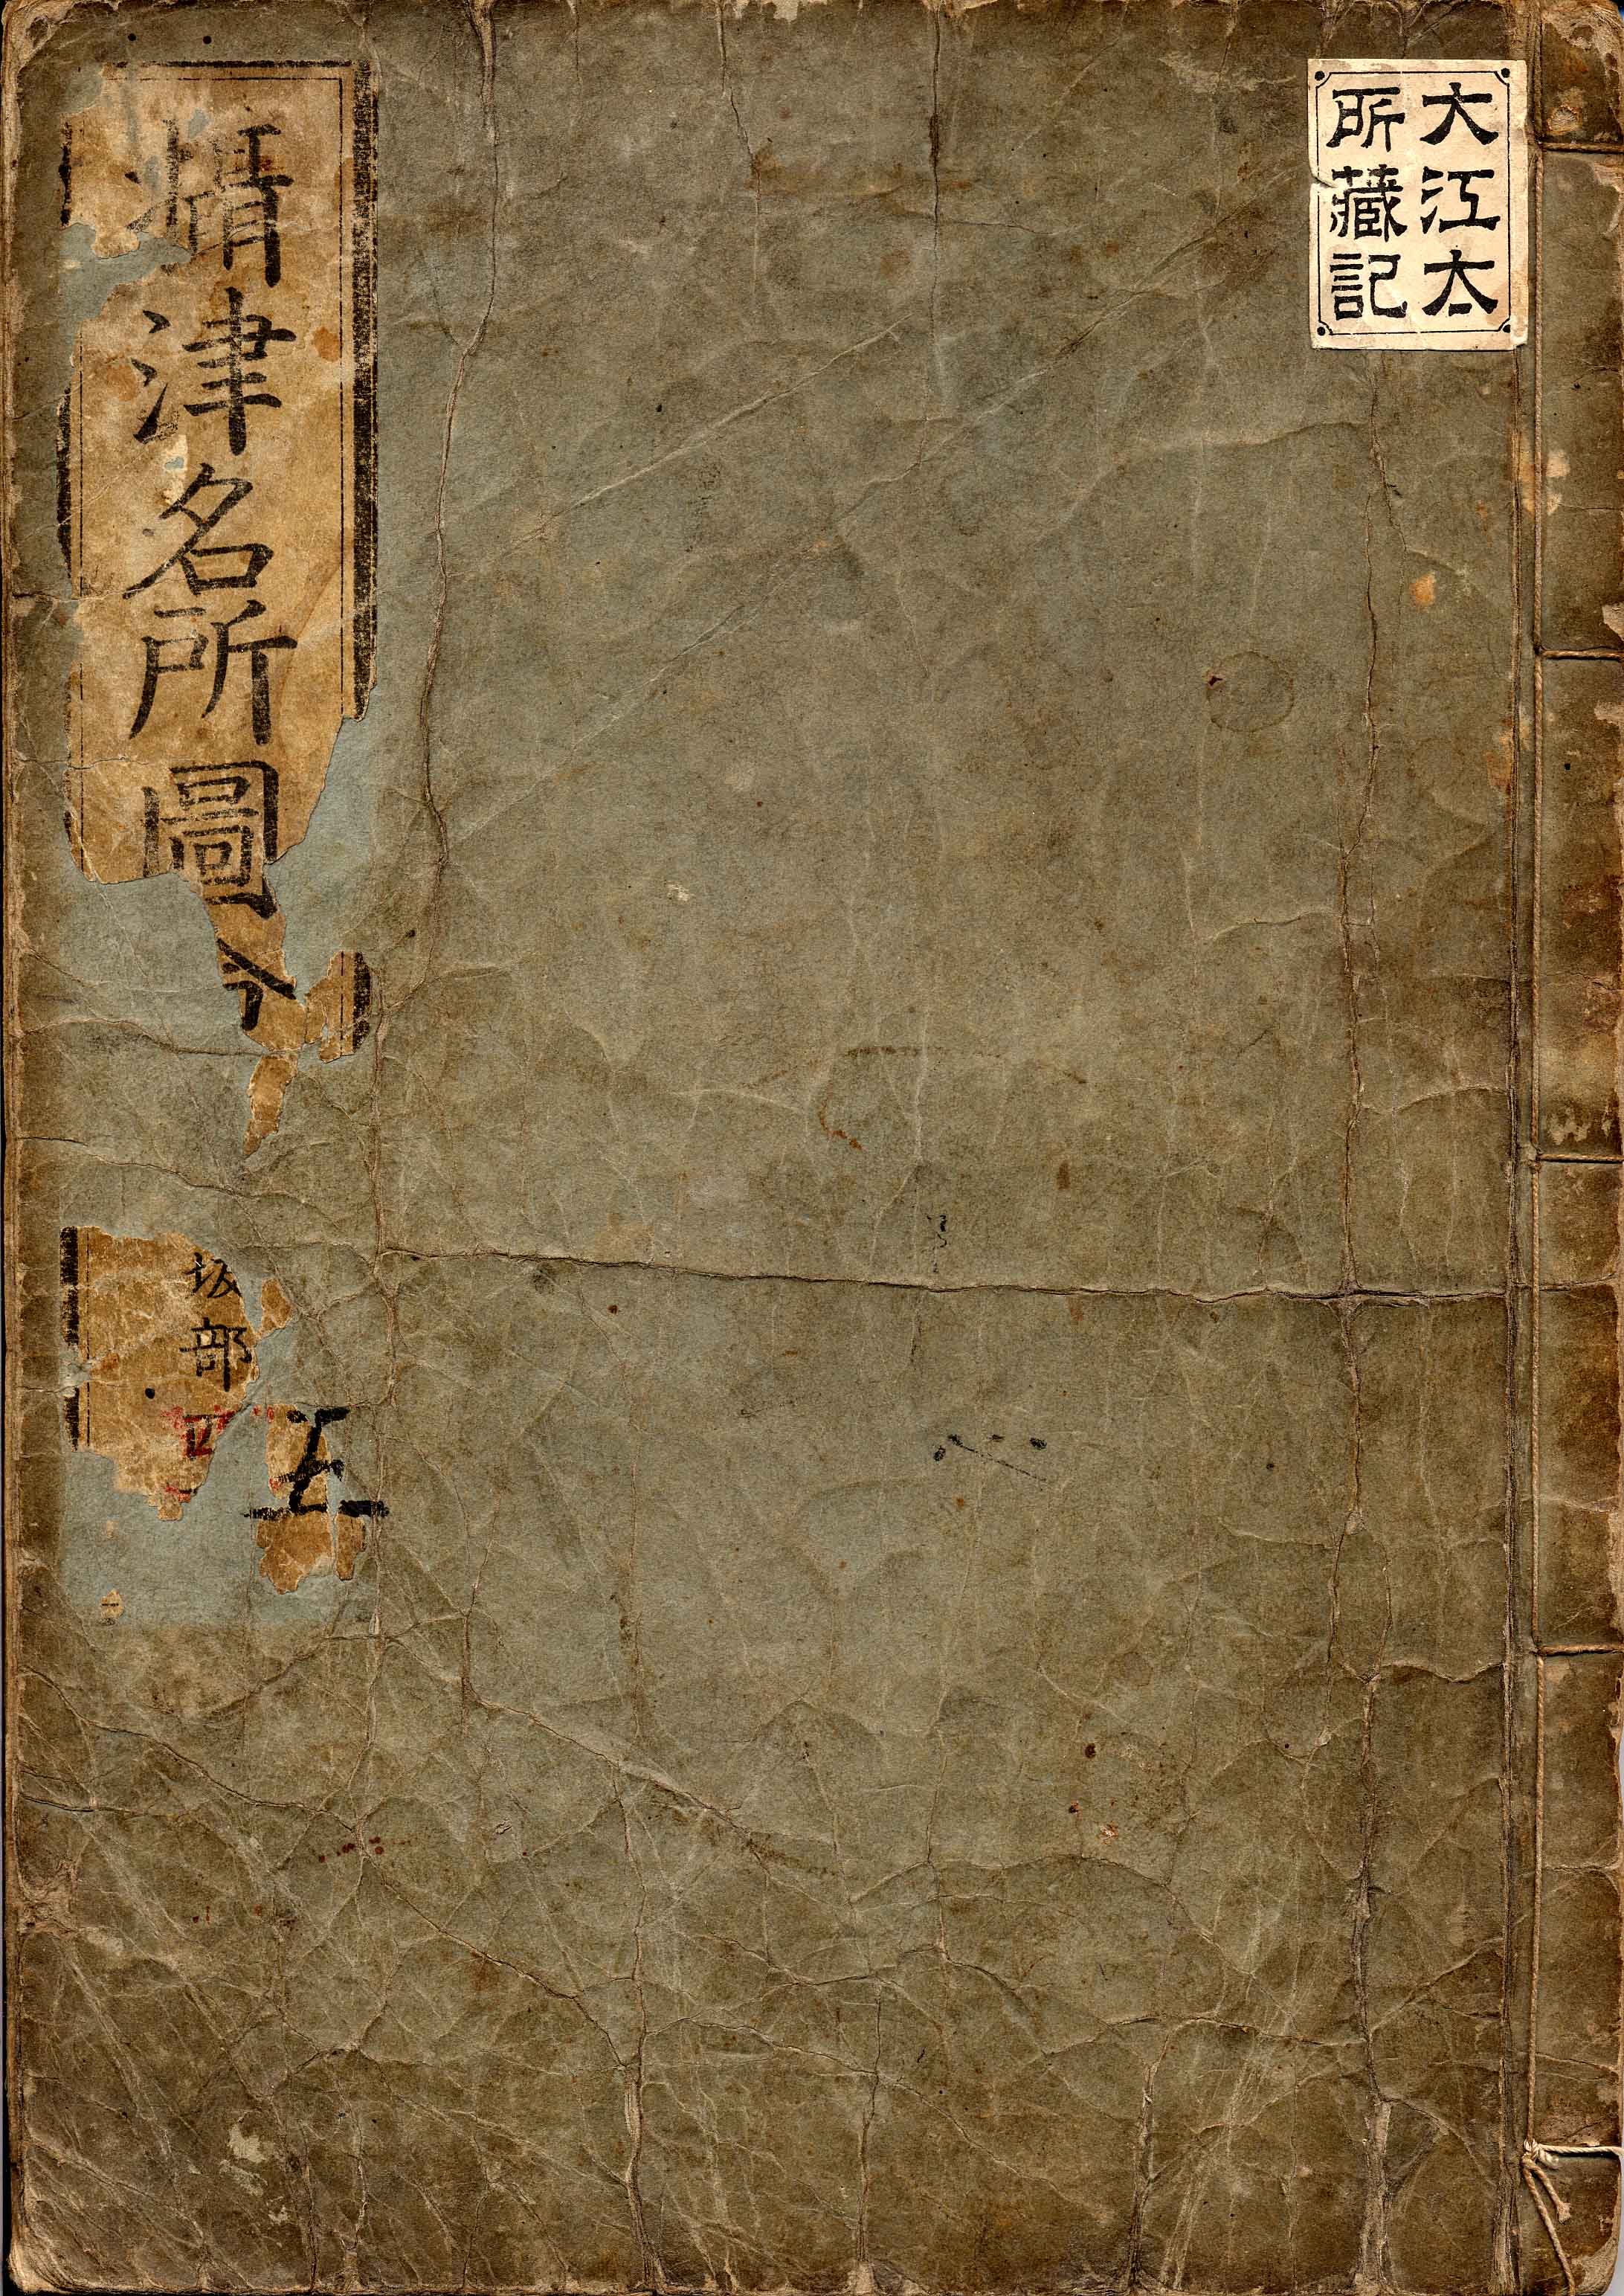 大江太
所藏記
攝津名所圖會
坂部
四
五